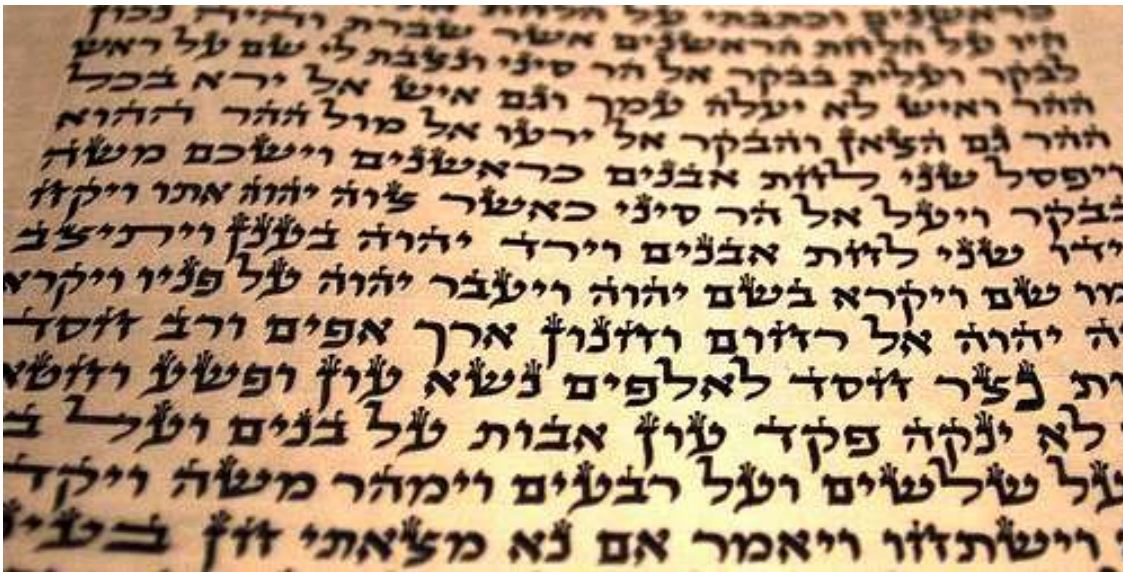 כראשנים וכתבתי על הלחת
היו על הלחת הראשנים אשר שברת והיה נכון
לבקר ועלית בבקר אל הר סיני ונצבת לי שם על ראש
ההר ואיש לא יעלה עמך וגם איש אל ירא בכל
ההר גם הצאן והבקר אל ירעו אל מול ההר ההוא
ויפסל שני לחת אבנים כראשנים וישכם משה
בבקר ויעל אל הר סיני כאשר צוה יהוה אתו ויקח
ידו שני לחת אבנים וירד יהוה בענן ויתיצב
מו שם ויקרא בשם יהוה ויעבר יהוה על פניו ויקרא
ה יהוה אל רחום וחנון ארך אפים ורב חסד
נצר חסד לאלפים נשא עון ופשע וחטא
לא ינקה פקד עון אבות על בנים ועל ב
על שלשים ועל רבעים וימהר משה ויקד
וישתחו ויאמר אם נא מצאתי חן בעינ